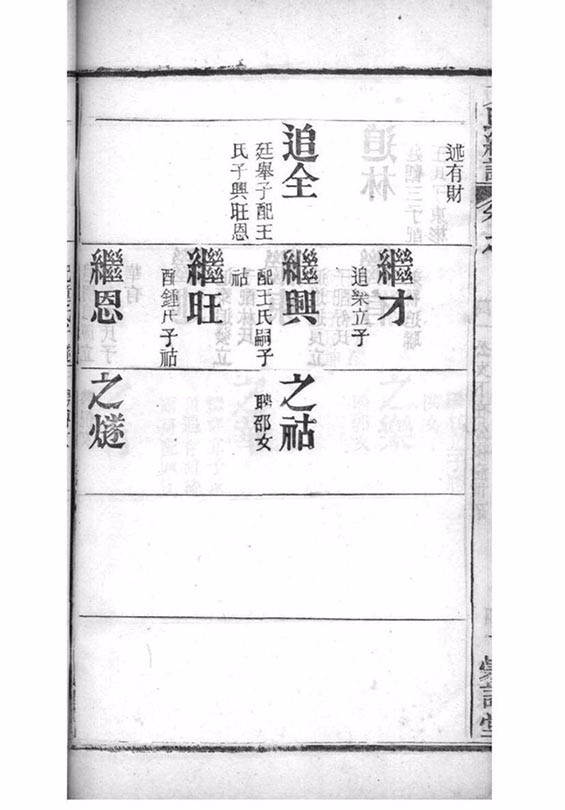 述有財
追全
廷舉子配王
氏子興旺恩
繼才
追立子
繼興
配王氏嗣子
祜
繼旺
配鍾氏子祜
繼恩
之祜
聘邵女
之燧